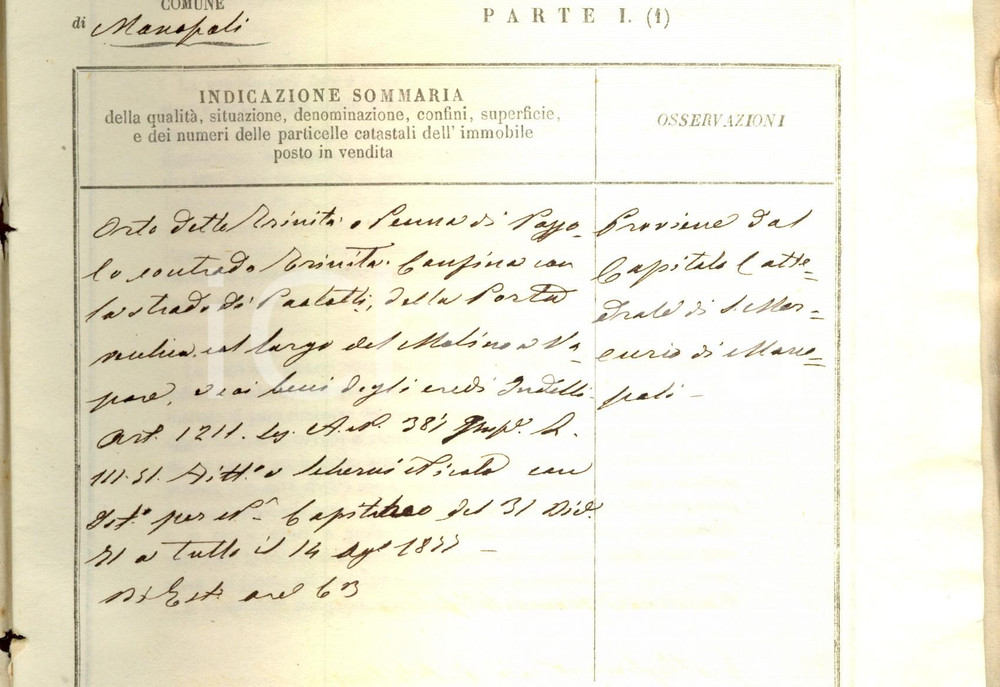 COMUNE
di Monopoli
PARTE I. (1)
INDICAZIONE SOMMARIA
della qualità, situazione, denominazione, confini, superficie,
e dei numeri delle particelle catastali dell' immobile
posto in vendita
OSSERVAZIONI
Orto detto Trinità o Penna di Pozzo-
lo contrada Trinità. Confina con
la strada di Paolotti, della Porta
vecchia, col largo del Molino a Va-
pore, e coi beni degli eredi Indelli.
Art. 1211. Sez. A. N. 381 Imp.
111.51. Fitt.o a Nicola con
per N. Capitolo del 31
71 a tutto il 14 Ag. 1877 –
Di Est. are 63
Proviene dal
Capitolo Catte=
drale di S. Mer=
curio di Mono=
poli –